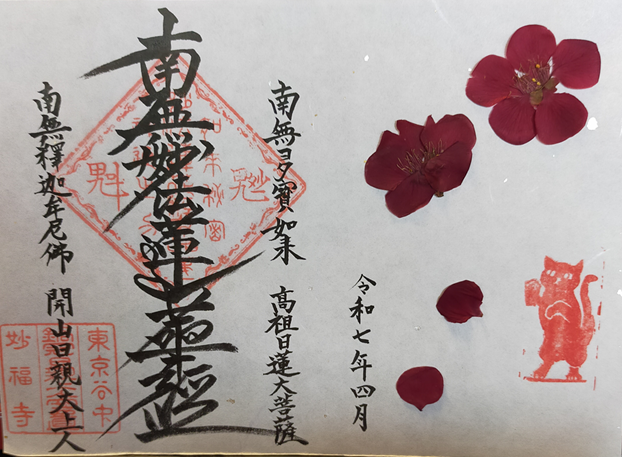 令和七年四月
南無多寶如来
高祖日蓮大菩薩
南無妙法蓮華經
南無釋迦牟尼佛
開山日親大上人
東京谷中
妙福寺